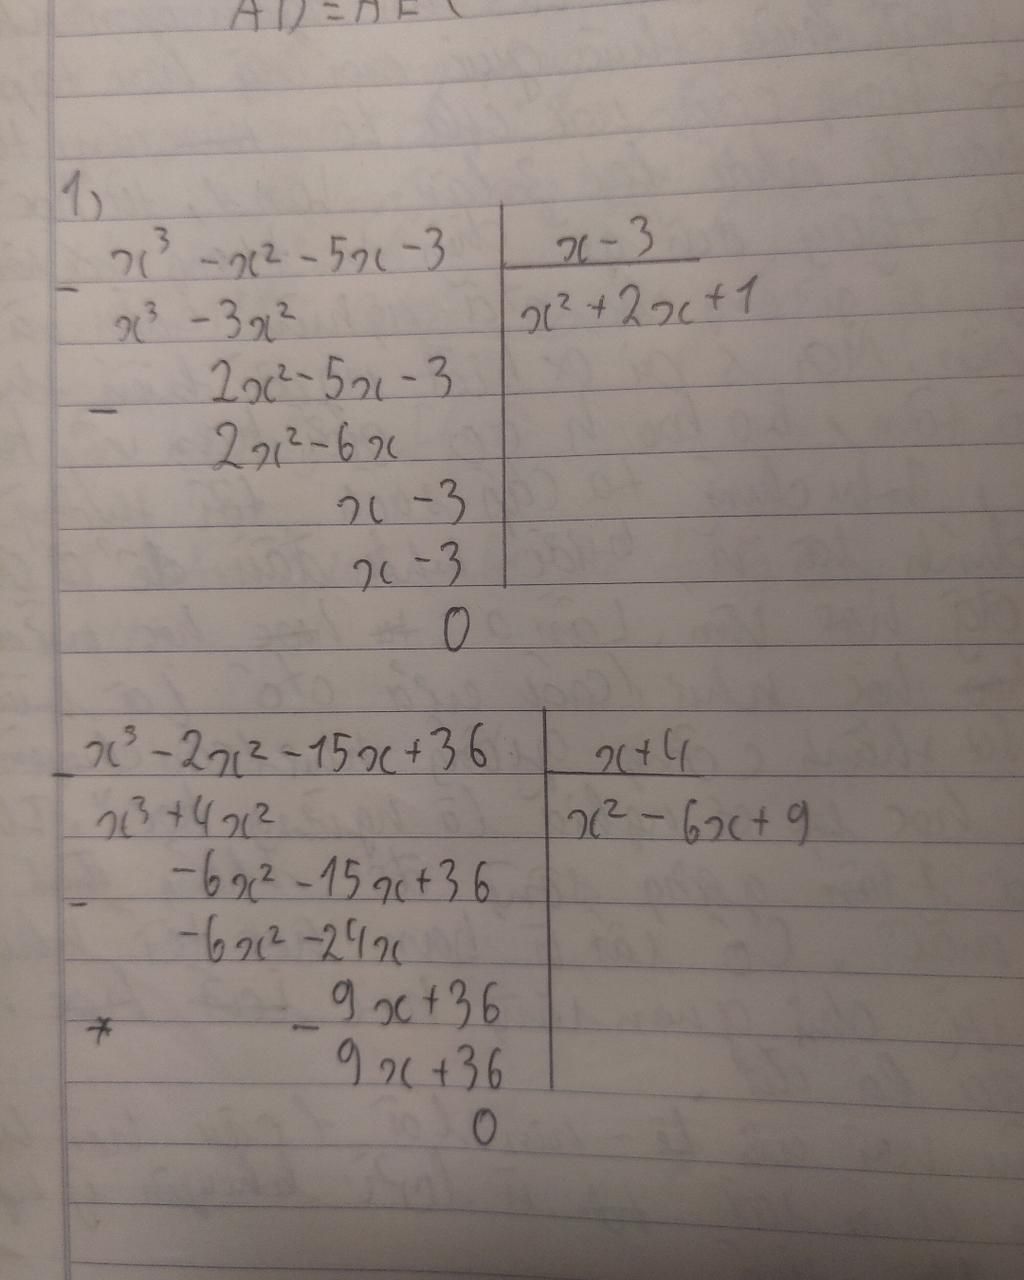 AD = AE (
1)
x³ - x² - 5x - 3 | x - 3
-
x³ - 3x² | x² + 2x + 1
2x² - 5x - 3
-
2x² - 6x
x - 3
x - 3
0
x³ - 2x² - 15x + 36 | x + 4
-
x³ + 4x² | x² - 6x + 9
-6x² - 15x + 36
-
-6x² - 24x
9x + 36
* -
9x + 36
0